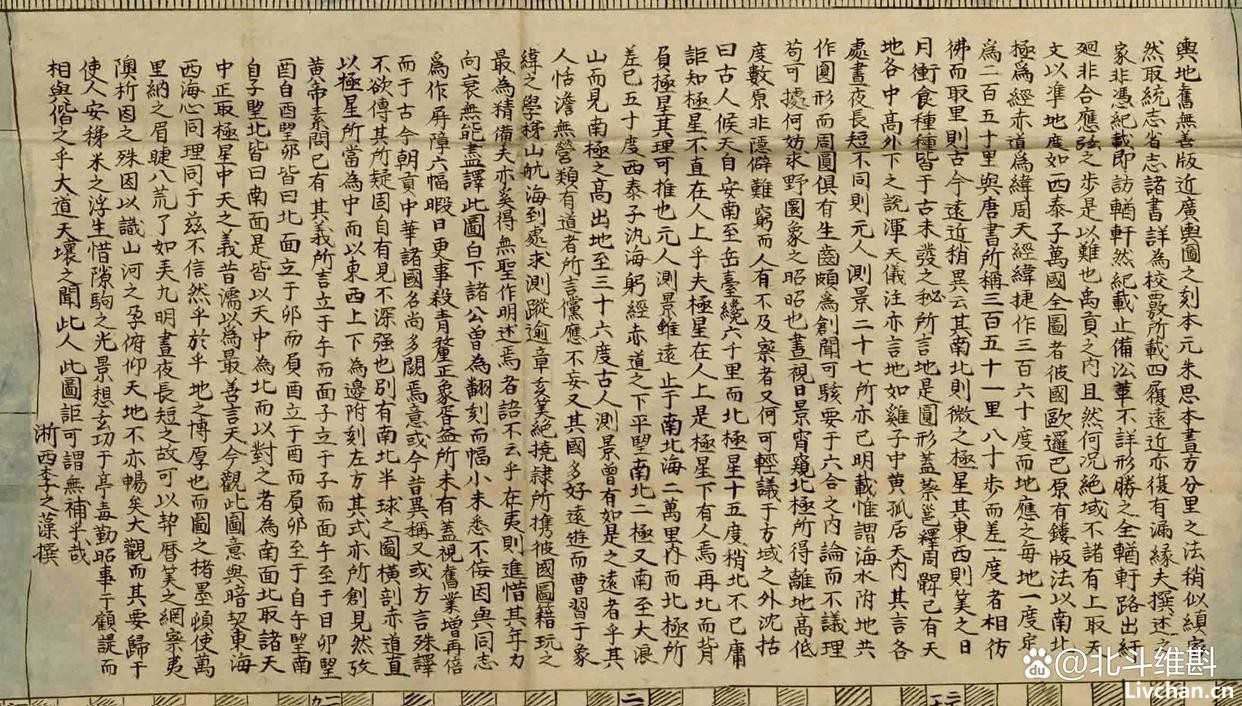 輿地舊無善版近廣輿圖之刻本元朱思本畫方分里之法稍似縝密
然取統志省志諸書詳為校覈所載四履遠近亦復有漏緣夫撰述之
家非憑紀載即訪輶軒然紀載止備沿革不詳形勝之全輶軒路出紆
廻非合應弦之步是以難也禹貢之內且然何況絕域不諸有上取天
文以準地度如西泰子萬國全圖者彼國歐邏巴原有鏤版法以南北
極為經赤道為緯周天經緯捷作三百六十度而地應之每地一度定
為二百五十里與唐書所稱三百五十一里八十步而差一度者相彷
彿而取里則古今遠近稍異云其南北則徵之極星其東西則筭之日
月衝食種種皆千古未發之秘所言地是圓形蓋蔡邕釋周髀已有天
地各中高外下之說渾天儀注亦言地如雞子中黃孤居天內其言各
處晝夜長短不同則元人測景二十七所亦已明載惟謂海水附地共
作圓形而周圓俱有生齒頗為創聞可駭要于六合之內論而不議理
苟可據何妨求野圜象之昭昭也晝視日景宵窺北極所得離地高低
度數原非隱僻難窮而人有不及察者又何可輕議于方域之外沈括
曰古人候天自安南至岳臺纔六千里而北極星十五度稍北不已庸
詎知極星不直在人上乎夫極星在人上是極星下有人焉再北而背
負極星其理可推也元人測景雖遠止于南北海二萬里內而北極所
差已五十度西泰子汎海躬經赤道之下平望南北二極又南至大浪
山而見南極之高出地至三十六度古人測景曾有如是之遠者乎其
人恬澹無營類有道者所言儻應不妄又其國多好遠遊而曹習于象
緯之學梯山航海到處求測蹤逾章亥筭絕撓隸所攜彼國圖籍玩之
最為精備夫亦奚得無聖作明述焉者語不云乎在夷則進惜其年力
向衰無能盡譯此圖白下諸公曾為翻刻而幅小未悉不佞因與同志
為作屏障六幅暇日更事殺青釐正象胥益所未有蓋視舊業增再倍
而于古今朝貢中華諸國名尚多闕焉意或今昔異稱又或方言殊譯
不欲傳其所疑固自有見不深強也別有南北半球之圖橫剖赤道直
以極星所當為中而以東西上下為邊附刻左方其式亦所創見然攷
黃帝素問已有其義所言立于午而面子立于子而面午至于自卯望
酉自酉望卯皆曰北面立于卯而負酉立于酉而負卯至于自午望南
自子望北皆曰南面是皆以天中為北而以對之者為南南面北取諸天
中正取極星中天之義昔儒以為最善言天今觀此圖意與暗契東海
西海心同理同于茲不信然乎於乎地之博厚也而圖之楮墨頓使萬
里納之眉睫八荒了如弄丸明晝夜長短之故可以契曆筭之綱察夷
隩析因之殊因以識山河之孕俯仰天地不亦暢矣大觀而其要歸于
使人安稊米之浮生惜隙駒之光景想玄功于亭毒勤昭事于顧諟而
相與偕之乎大道天壤之間此人此圖詎可謂無補乎哉
浙西李之藻撰
Bai du @北斗维斟
Livchan.cn